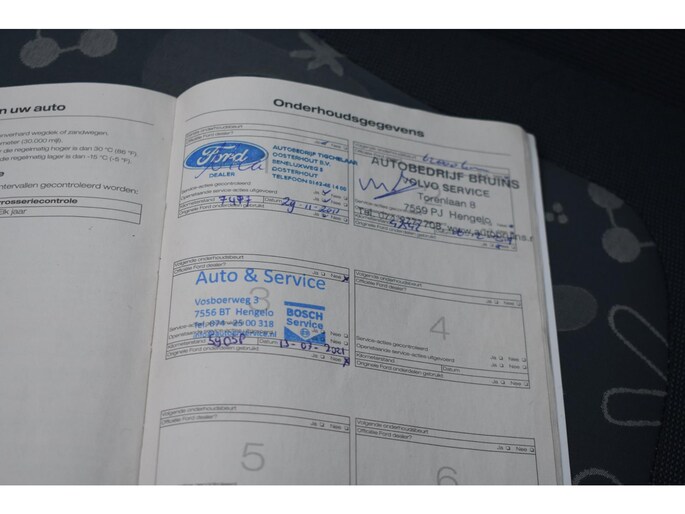 n uw auto
nverhard wegdek of zandwegen.
meter (30.000 mijl).
die regelmatig hoger is dan 30 °C (86 °F).
die regelmatig lager is dan -15 °C (-5 °F).
intervallen gecontroleerd worden:
rrosseriecontrole
lk jaar
Onderhoudsgegevens
Officiële Ford dealer?
Ford
DEALER
AUTOBEDRIJF TISCHELAAR
OOSTERHOUT B.V.
BENELUXWEG 5
OOSTERHOUT
Service-acties gecontroleerd
Openstaande service-acties uitgevoerd
Kilometerstand 7477 Datum
Originele Ford onderdelen gebruikt
AUTOBEDRIJF BRUINS
VOLVO SERVICE
Torenlaan 8
7559 PJ Hengelo
Volgende onderhoudsbeurt
Officiële Ford dealer? Ja Nee
Auto & Service
Vosboerweg 3
7556 BT Hengelo
Tel. 074 - 25 00 318
BOSCH
Service
3
Kilometerstand Datum 13-07-2021
Originele Ford onderdelen gebruikt Ja Nee
Volgende onderhoudsbeurt
Officiële Ford dealer? Ja Nee
4
Service-acties gecontroleerd
Openstaande service-acties uitgevoerd Ja Nee
Kilometerstand Datum
Originele Ford onderdelen gebruikt Ja Nee
Volgende onderhoudsbeurt
Officiële Ford dealer? Ja Nee
5
Service-acties gecontroleerd
Volgende onderhoudsbeurt
Officiële Ford dealer? Ja Nee
6